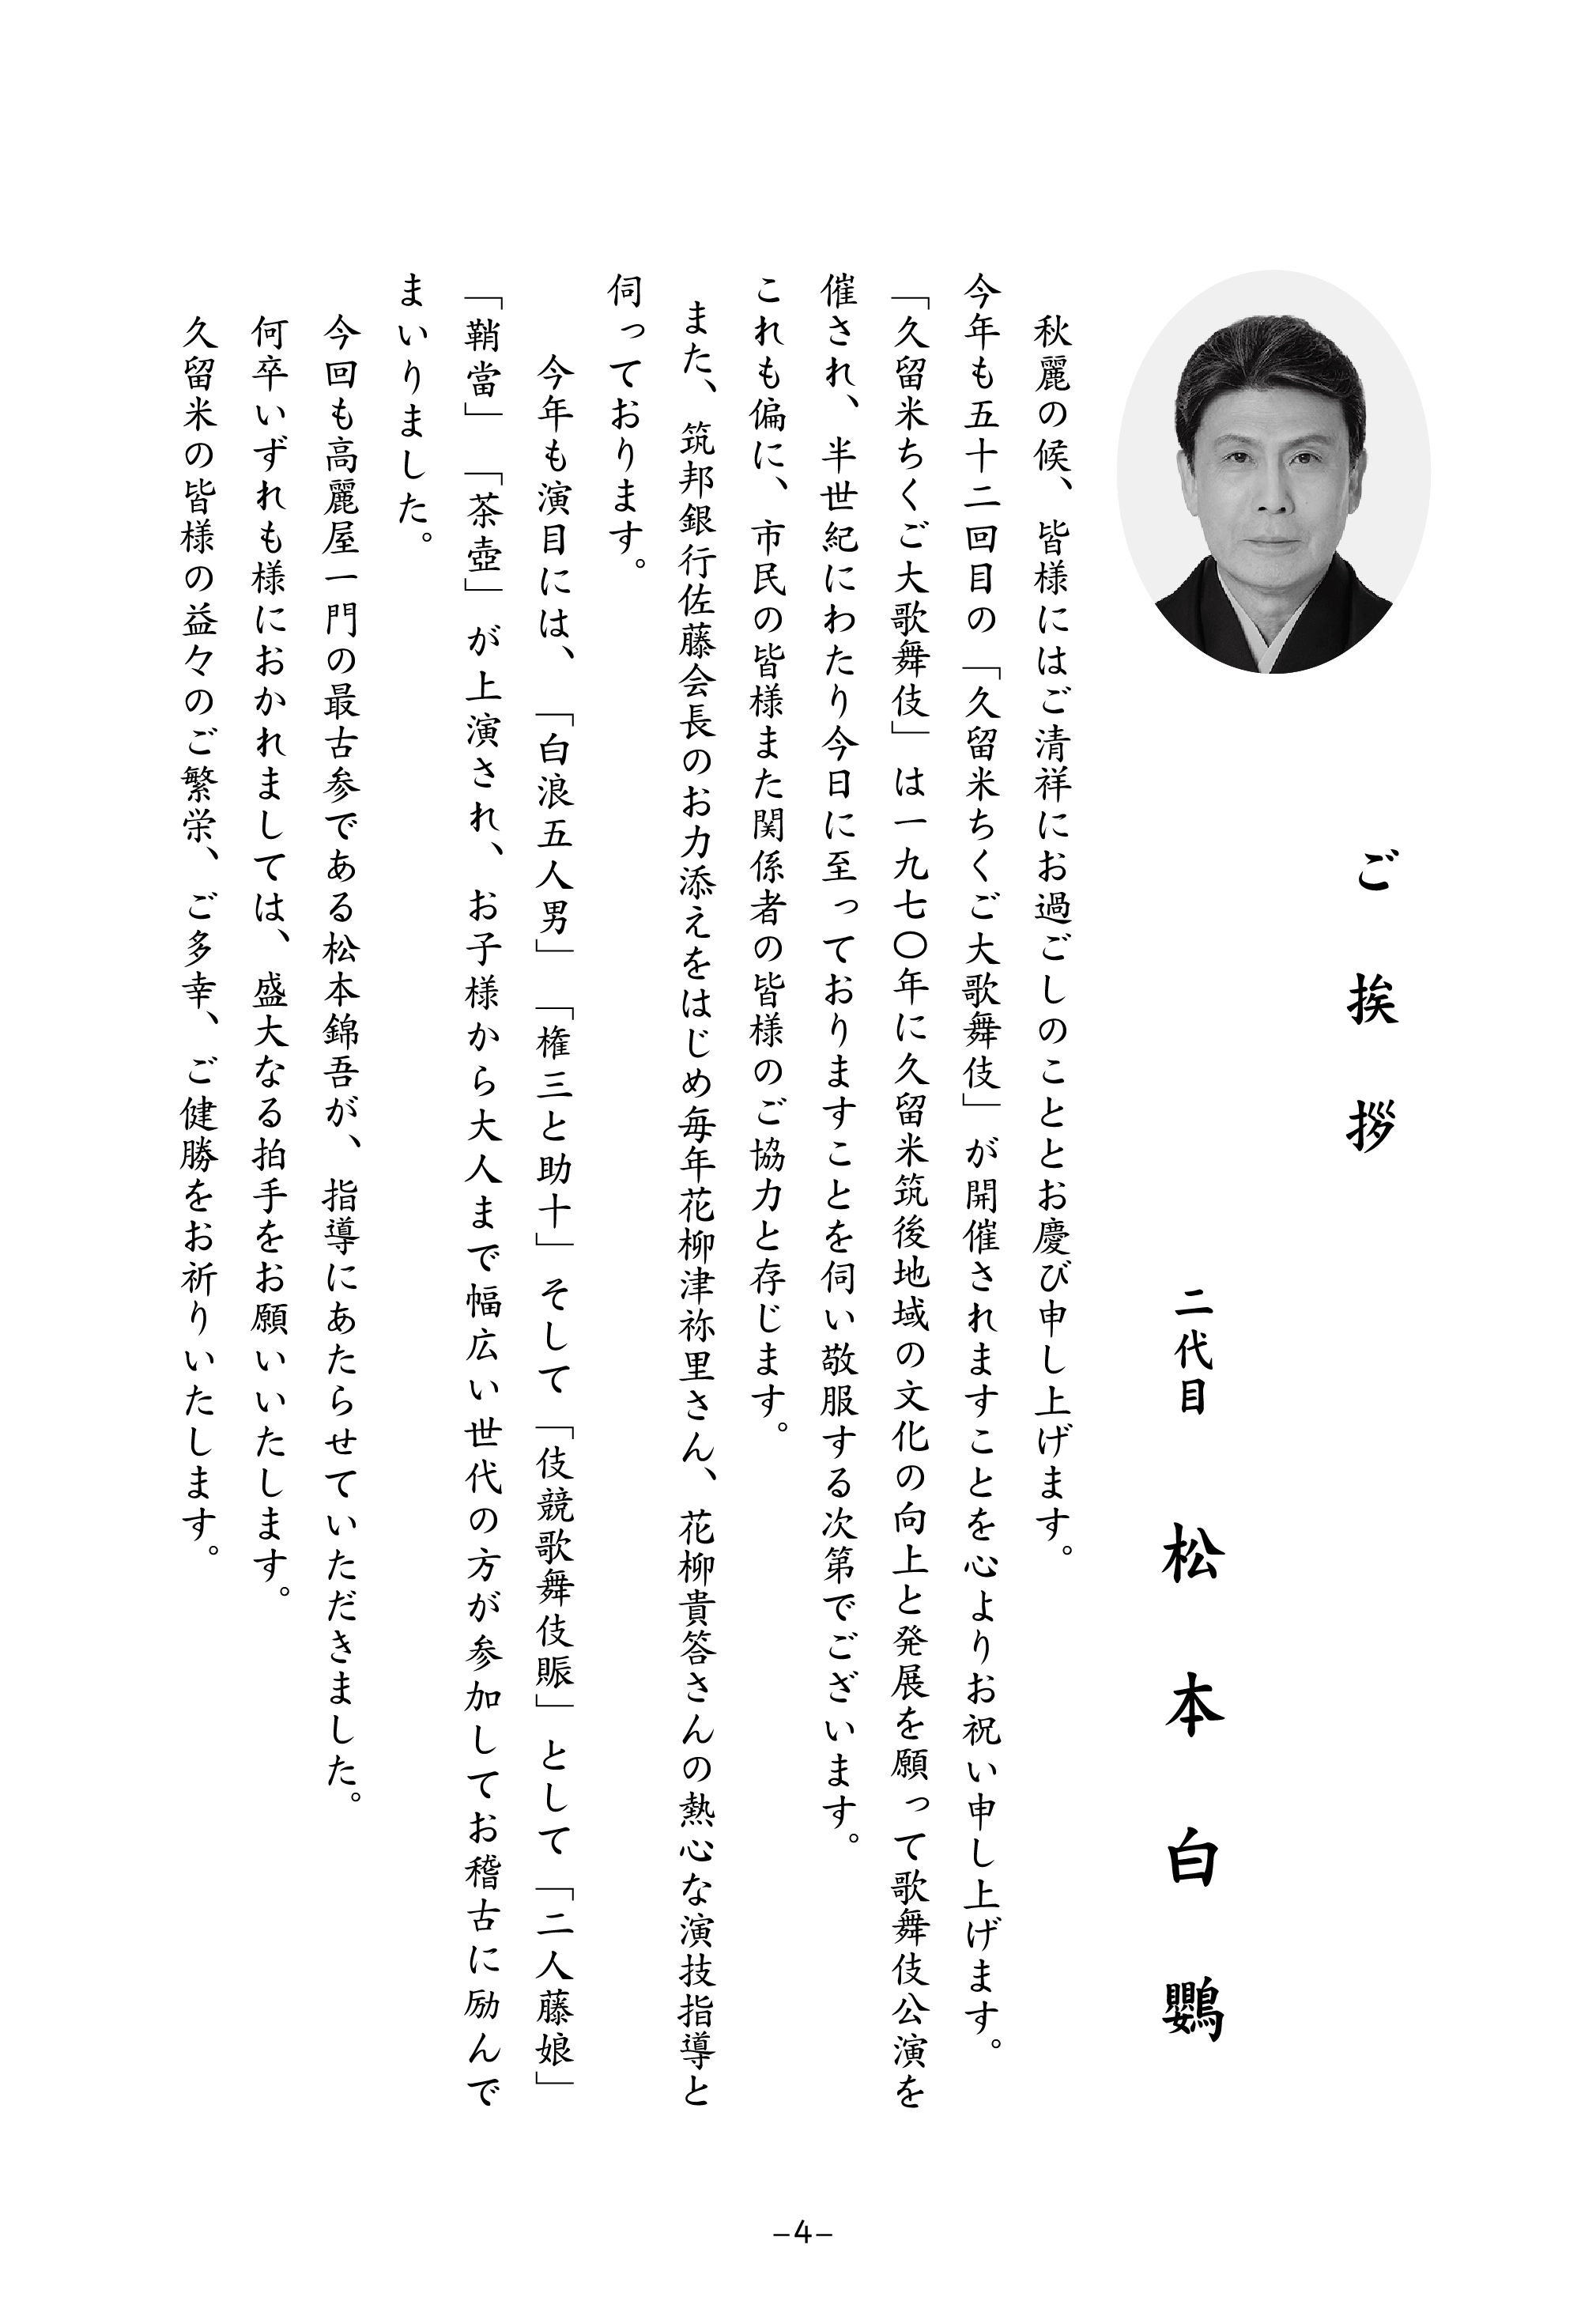 ご挨拶
二代目 松本白鸚
秋麗の候、皆様にはご清祥にお過ごしのこととお慶び申し上げます。
今年も五十二回目の「久留米ちくご大歌舞伎」が開催されますことを心よりお祝い申し上げます。
「久留米ちくご大歌舞伎」は一九七〇年に久留米筑後地域の文化の向上と発展を願って歌舞伎公演を
催され、半世紀にわたり今日に至っておりますことを伺い敬服する次第でございます。
これも偏に、市民の皆様また関係者の皆様のご協力と存じます。
また、筑邦銀行佐藤会長のお力添えをはじめ毎年花柳津祢里さん、花柳貴答さんの熱心な演技指導と
伺っております。
今年も演目には、「白浪五人男」「権三と助十」そして「伎競歌舞伎賑」として「二人藤娘」
「鞘當」「茶壺」が上演され、お子様から大人まで幅広い世代の方が参加してお稽古に励んで
まいりました。
今回も高麗屋一門の最古参である松本錦吾が、指導にあたらせていただきました。
何卒いずれも様におかれましては、盛大なる拍手をお願いいたします。
久留米の皆様の益々のご繁栄、ご多幸、ご健勝をお祈りいたします。
−4−